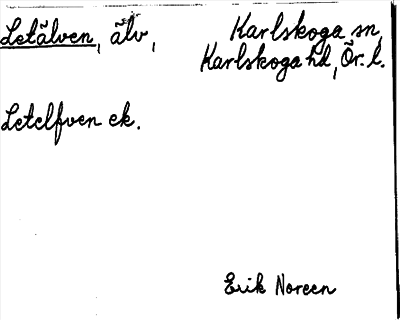 Letälven, älv, Karlskoga sn,
Karlskoga hd, Ör. l.
Letelfven ek.
Erik Noreen